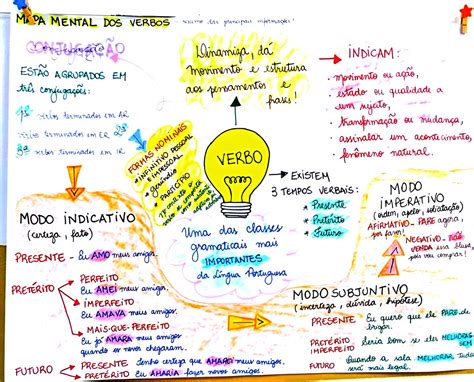 MAPA MENTAL DOS VERBOS
resumo das principais informações!
CONJUGAÇÃO
ESTÃO AGRUPADOS EM
três conjugações:
1ª verbos terminados em AR
2ª verbos terminados em ER
3ª verbos terminados em IR
Dinamiza, dá
movimento e estrutura
aos pensamentos e
frases!
INDICAM:
• movimento ou ação,
• estado ou qualidade de
um sujeito,
• transformação ou mudança,
• assinalar um acontecimento,
• fenômeno natural.
FORMAS NOMINAIS
• INFINITIVO PESSOAL
E IMPESSOAL
• gerúndio
• PARTICÍPIO
VERBO
EXISTEM
3 TEMPOS VERBAIS:
• Presente
• Pretérito
• Futuro
Uma das classes
gramaticais mais
IMPORTANTES
da Língua Portuguesa
MODO INDICATIVO
(certeza, fato)
PRESENTE - Eu AMO meus amigos.
PRETÉRITO
PERFEITO
Eu AMEI meus amigos.
IMPERFEITO
Eu AMAVA meus amigos.
MAIS-QUE-PERFEITO
Eu já AMARA meus amigos
quando se chegaram.
FUTURO
PRESENTE - Tenho certeza que AMAREI meus amigos.
PRETÉRITO - Eu AMARIA fazer novos amigos.
MODO
IMPERATIVO
(ordem, apelo, solicitação)
AFIRMATIVO - FARE agora,
por favor!
NEGATIVO - NÃO
VENDA sua blusa,
pois vou comprar!
MODO SUBJUNTIVO
(incerteza, dúvida, hipótese)
PRESENTE
Eu quero que ele PARE de
brigar.
PRETÉRITO
IMPERFEITO
Seria bom se ele MELHORASSE
FUTURO
Quando a sala MELHORAR, tudo
será mais legal.